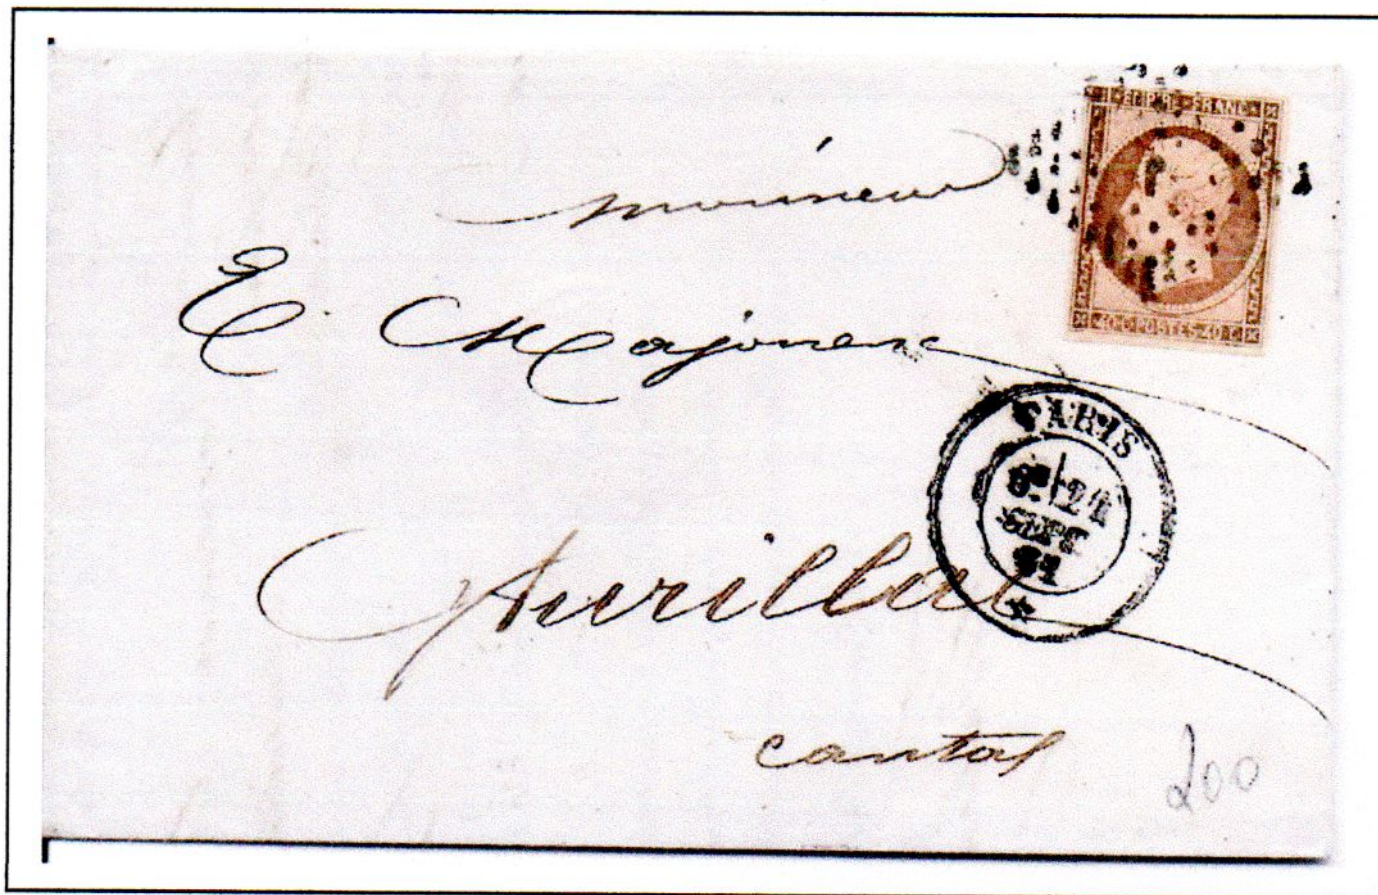 EMPIRE FRANC
40 C POSTES 40 C
monsieur
E. Majonenc
PARIS
SEPT
Aurillac
cantal
200